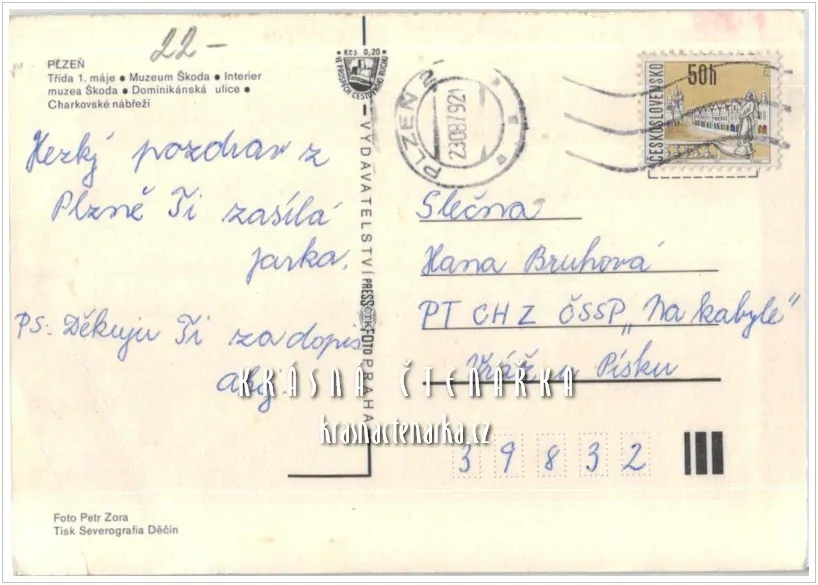 22-
PLZEŇ
Třída 1. máje ● Muzeum Škoda ● Interier
muzea Škoda ● Dominikánská ulice ●
Charkovské nábřeží
Hezký pozdrav z
Plzně Ti zasílá
Jarka.
PS: Děkuju Ti za dopis
ahoj.
Foto Petr Zora
Tisk Severografia Děčín
Kčs 0,20
VYDAVATELSTVÍ PRESSFOTO PRAHA
ČTK
PLZEŇ 2
23.08.79 21
ČESKOSLOVENSKO
50h
Slečna
Hana Bruhová
PT CHZ ČSSP „Na kabyle"
Kráž u Písku
39832
KRÁSNÁ ČTENÁŘKA
krasnactenarka.cz